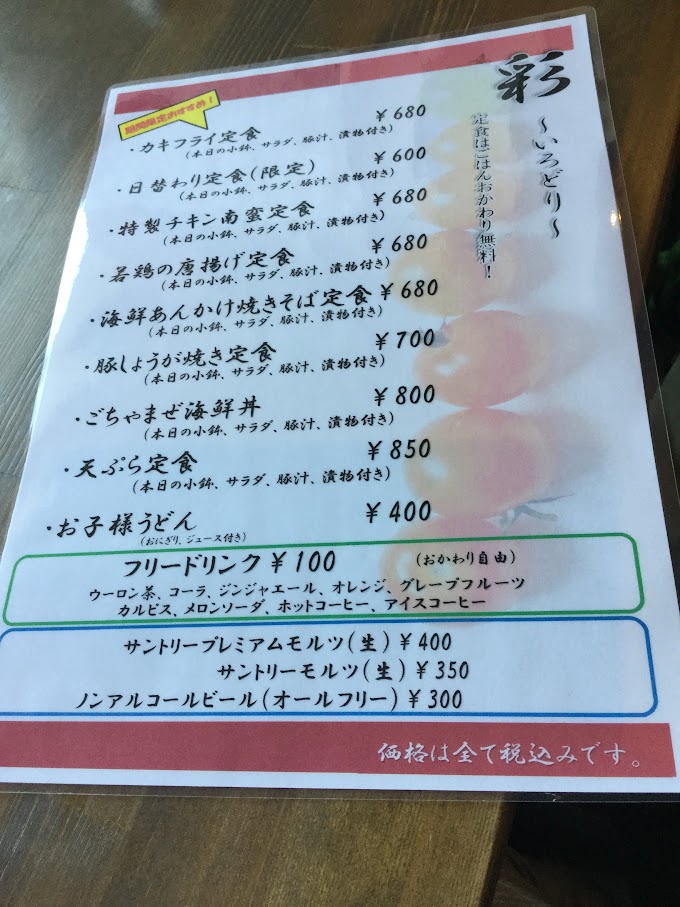 彩
～いろどり～
定食はごはんおかわり無料！
期間限定おすすめ！
・カキフライ定食 ￥680
(本日の小鉢、サラダ、豚汁、漬物付き)
・日替わり定食(限定) ￥600
(本日の小鉢、サラダ、豚汁、漬物付き)
・特製チキン南蛮定食 ￥680
(本日の小鉢、サラダ、豚汁、漬物付き)
・若鶏の唐揚げ定食 ￥680
(本日の小鉢、サラダ、豚汁、漬物付き)
・海鮮あんかけ焼きそば定食 ￥680
(本日の小鉢、サラダ、豚汁、漬物付き)
・豚しょうが焼き定食 ￥700
(本日の小鉢、サラダ、豚汁、漬物付き)
・ごちゃまぜ海鮮丼 ￥800
(本日の小鉢、サラダ、豚汁、漬物付き)
・天ぷら定食 ￥850
(本日の小鉢、サラダ、豚汁、漬物付き)
・お子様うどん ￥400
(おにぎり、ジュース付き)
フリードリンク ￥100 (おかわり自由)
ウーロン茶、コーラ、ジンジャエール、オレンジ、グレープフルーツ
カルピス、メロンソーダ、ホットコーヒー、アイスコーヒー
サントリープレミアムモルツ(生) ￥400
サントリーモルツ(生) ￥350
ノンアルコールビール(オールフリー) ￥300
価格は全て税込みです。